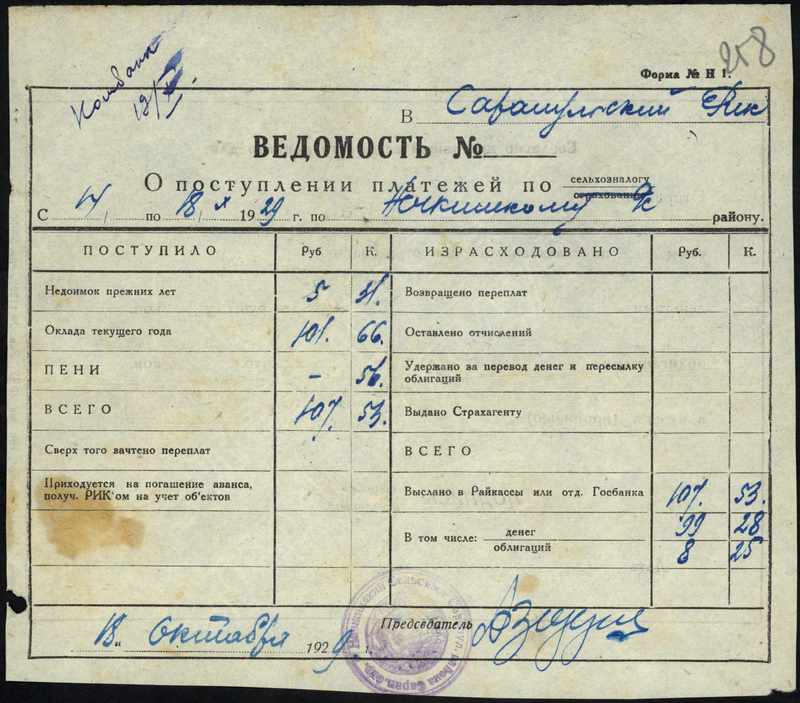 258
Форма № Н 1.
Комбанк
19/X
В Сарапульский Рик
ВЕДОМОСТЬ №
О поступлении платежей по сельхозналогу
страхованию
С 17 по 18 X 1929 г. по району.
ПОСТУПИЛО Руб К. ИЗРАСХОДОВАНО Руб. К.
Недоимок прежних лет 5 31. Возвращено переплат
Оклада текущего года 101. 66. Оставлено отчислений
ПЕНИ - 56. Удержано за перевод денег и пересылку облигаций
ВСЕГО 107. 53. Выдано Страхагенту
Сверх того зачтено переплат ВСЕГО
Приходуется на погашение аванса,
получ. РИК'ом на учет об'ектов Выслано в Райкассы или отд. Госбанка 107. 53.
В том числе: денег 99 28
облигаций 8 25
18 " Октября 1929 г. Председатель